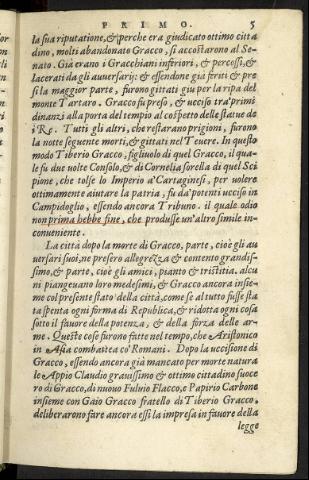 PRIMO. 5
la sua riputatione, & perche era giudicato ottimo citta
dino, molti abandonato Gracco, si accostarono al Se-
nato. Già erano i Gracchiani inferiori, & percossi, &
lacerati da gli auuersarij: & essendone già feriti & pre
si la maggior parte, furono gittati giu per la ripa del
monte Tartaro. Gracco fu preso, & ucciso tra' primi
dinanzi alla porta del tempio al cospetto delle statue de
i Re. Tutti gli altri, che restarano prigioni, furono
la notte seguente morti, & gittati nel Teuere. In questo
modo Tiberio Gracco, figliuolo di quel Gracco, il qua-
le fu due uolte Consolo, & di Cornelia sorella di quel Sci
pione, che tolse lo Imperio a' Cartaginesi, per uolere
ottimamente aiutare la patria, fu da' potenti ucciso in
Campidoglio, essendo ancora Tribuno. il quale odio
non prima hebbe fine, che produsse un'altro simile in-
conueniente.
La città dopo la morte di Gracco, parte, cioè gli au
uersari suoi, ne presero allegrezza & contento grandis-
simo, & parte, cioè gli amici, pianto & tristitia. alcu
ni piangeuano loro medesimi, & Gracco ancora insie-
me col presente stato della città, come se al tutto fusse sta
ta spenta ogni forma di Republica, & ridotta ogni cosa
sotto il fauore della potenza, & della forza delle ar-
me. Queste cose furono fatte nel tempo, che Aristonico
in Asia combattea co' Romani. Dopo la uccisione di
Gracco, essendo ancora già mancato per morte natura
le Appio Claudio grauissimo & ottimo cittadino suoce
ro di Gracco, di nuouo Fuluio Flacco, e Papirio Carbone
insieme con Gaio Gracco fratello di Tiberio Gracco,
deliberarono fare ancora essi la impresa in fauore della
legge